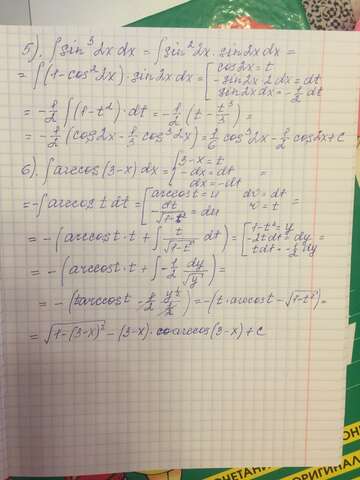 5). ∫ sin³2x dx = ∫ sin²2x · sin2x dx =
= ∫ (1-cos²2x) · sin2x dx = [ cos2x = t
-sin2x · 2dx = dt
sin2x dx = -1/2 dt
= -1/2 ∫ (1-t²) · dt = -1/2 (t - t³/3) =
= -1/2 (cos2x - 1/3 cos³2x) = 1/6 cos³2x - 1/2 cos2x + C
6). ∫ arccos(3-x) dx = [ 3-x = t
-dx = dt
dx = -dt
= -∫ arccos t dt = [ arccos t = u dv = dt
dt/√1-t² = du v = t =
= -(arccos t · t + ∫ t/√1-t² dt) = [ 1-t² = y
-2tdt = dy
tdt = -1/2 dy =
= -(arccos t · t + ∫ -1/2 dy/√y) =
= -(t arccos t - 1/2 y^½/½) = -(t · arccos t - √1-t²) =
= √1-(3-x)² - (3-x) · arccos(3-x) + C
ОНЕ
ОЧЕТАНИ
ОРИГИНАЛ